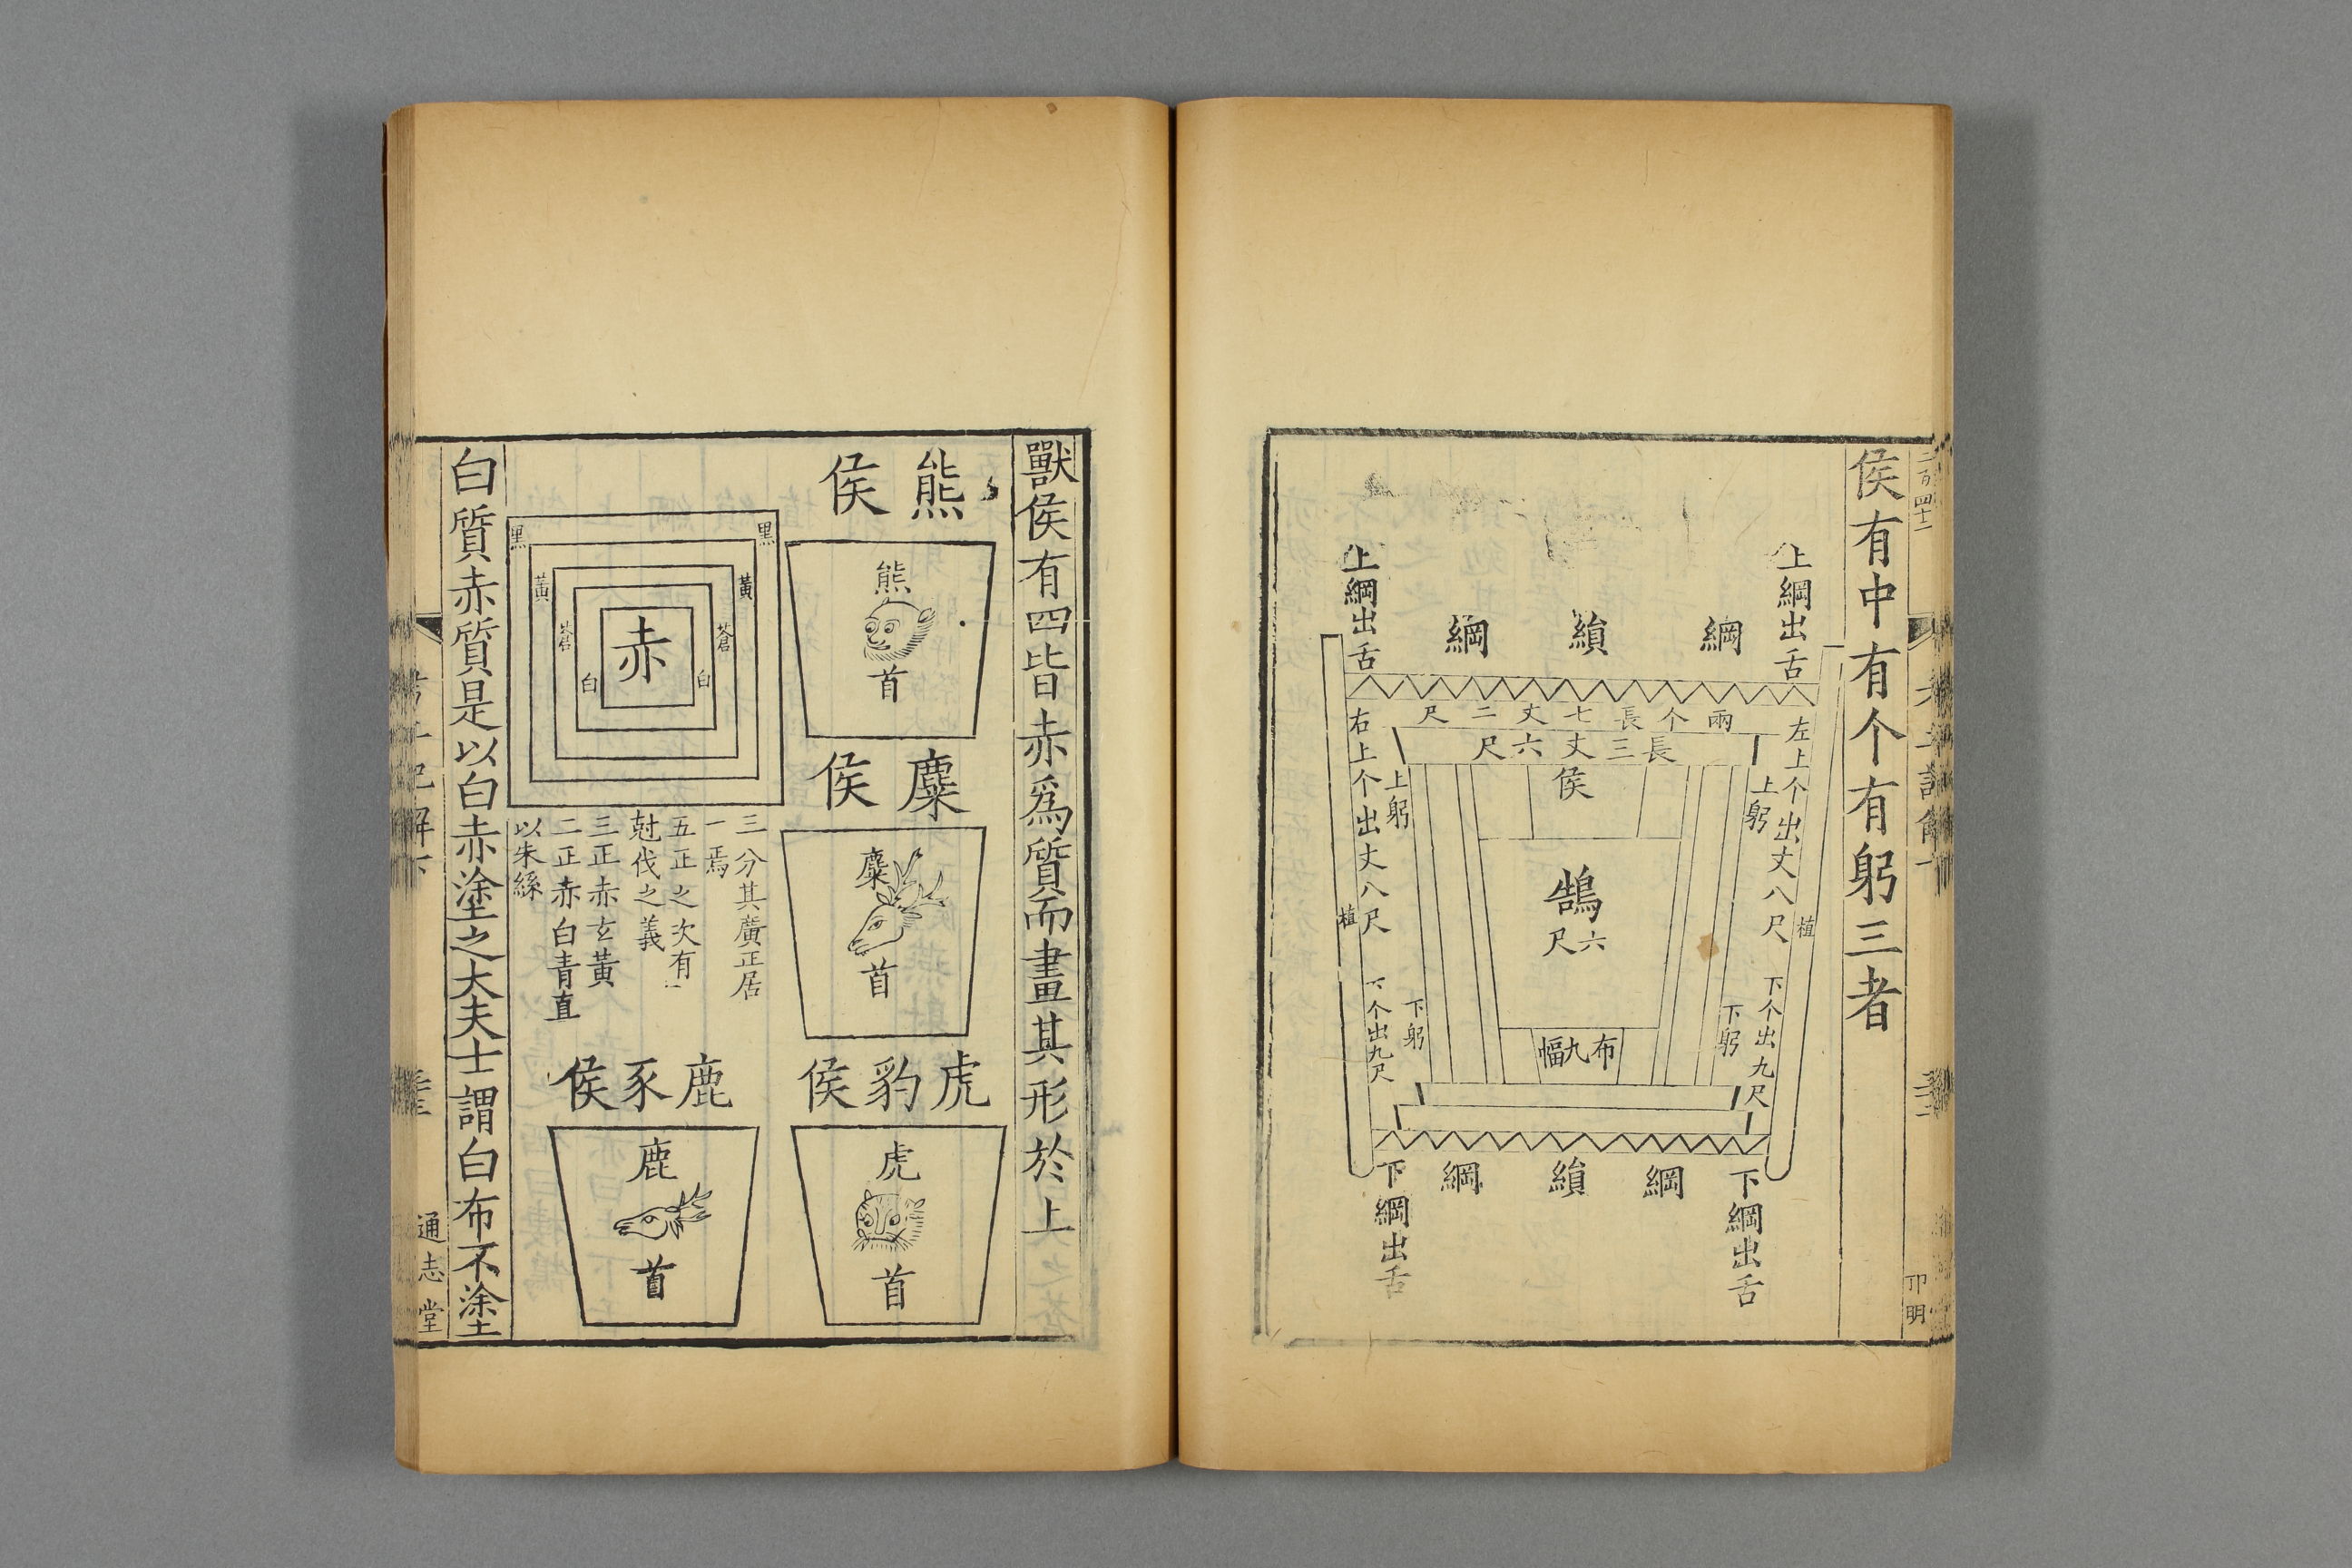 侯有中有个有躬三者
上綱出舌
綱
縜
綱
上綱出舌
兩个長七丈二尺
長三丈六尺
左上个出丈八尺
上躬
侯
上躬
右上个出丈八尺
植
鵠
六尺
植
下个出九尺
下躬
布九幅
下躬
下个出九尺
下綱出舌
綱
縜
綱
下綱出舌
獸侯有四皆赤爲質而畫其形於上
熊侯
熊
首
麋侯
麋
首
虎豹侯
虎
首
黑
黃
蒼
白
赤
白
蒼
黃
黑
三分其廣正居
一焉
五正之次有一
尅伐之義
三正赤玄黃
二正赤白青直
以朱綠
鹿豕侯
鹿
首
白質赤質是以白赤塗之大夫士謂白布不塗
通志堂